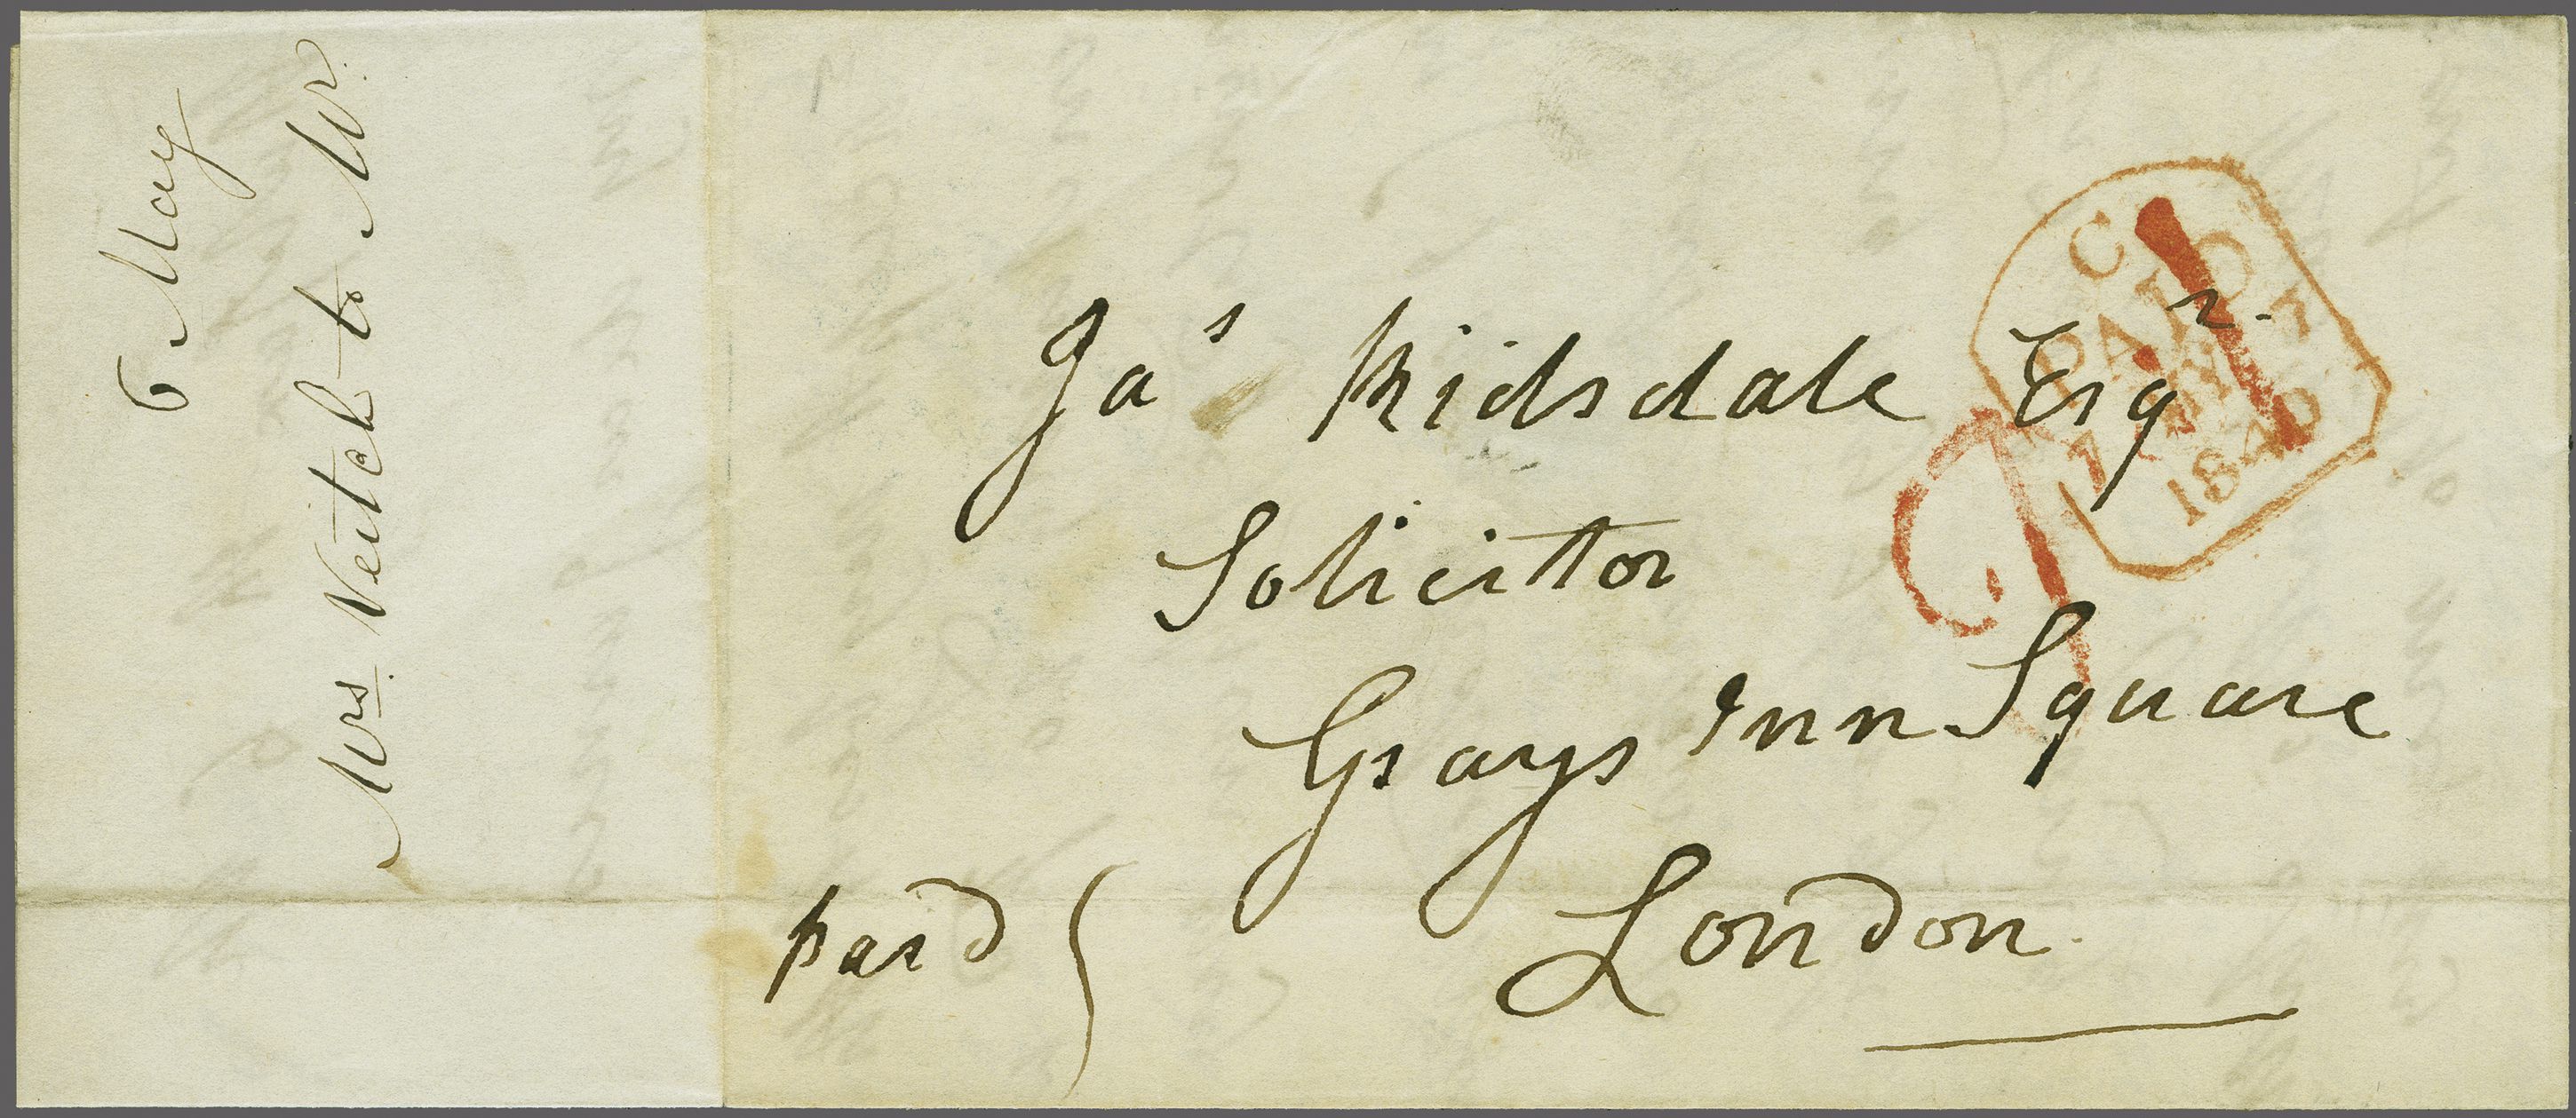 6 May
Mrs. Veitch to Mr.
Jas Ridsdale Esqr.
Solicitor
Grays Inn Square
London.
paid
C
PAID
7 MY 7
1840